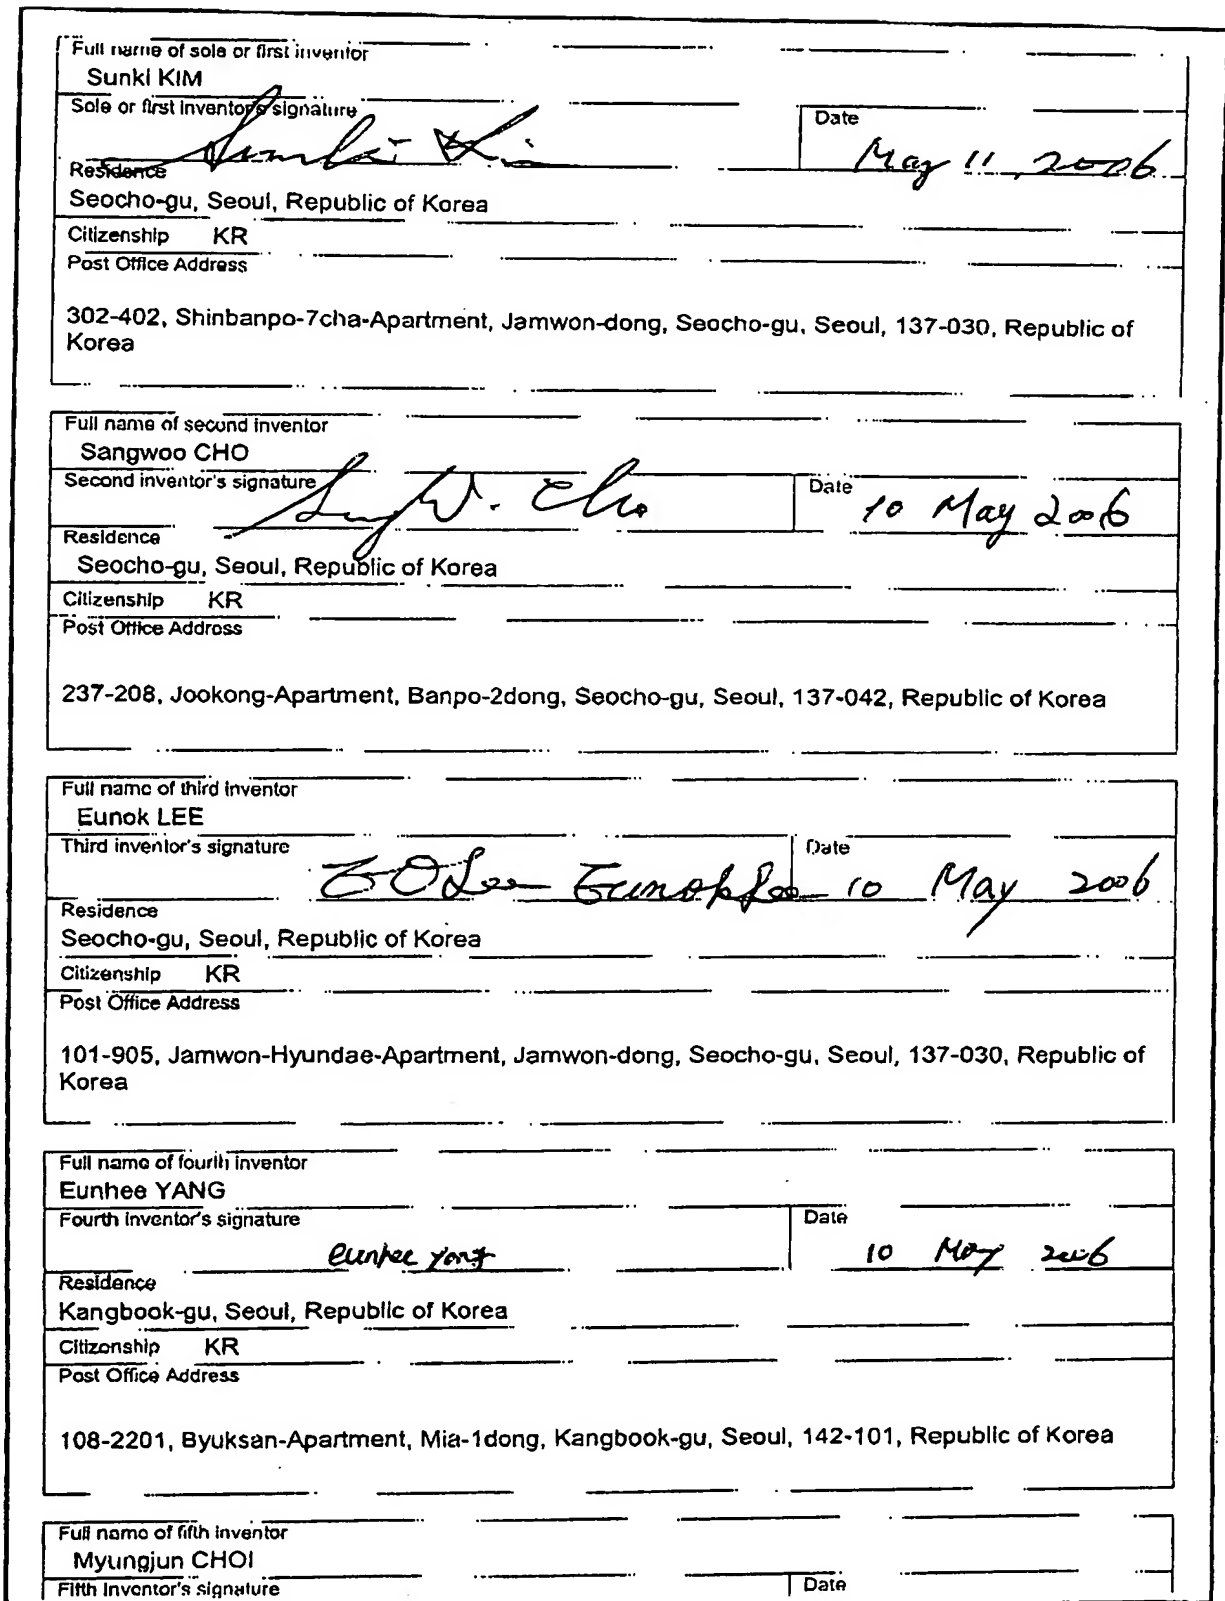 Full name of sole or first inventor
Sunki KIM
Sole or first inventor's signature
Sunki Kim
Date
May 11, 2006
Residence
Seocho-gu, Seoul, Republic of Korea
Citizenship KR
Post Office Address
302-402, Shinbanpo-7cha-Apartment, Jamwon-dong, Seocho-gu, Seoul, 137-030, Republic of
Korea
Full name of second inventor
Sangwoo CHO
Second inventor's signature
W. Cho
Date
10 May 2006
Residence
Seocho-gu, Seoul, Republic of Korea
Citizenship KR
Post Office Address
237-208, Jookong-Apartment, Banpo-2dong, Seocho-gu, Seoul, 137-042, Republic of Korea
Full name of third inventor
Eunok LEE
Third inventor's signature
E O Lee Eunok Lee
Date
10 May 2006
Residence
Seocho-gu, Seoul, Republic of Korea
Citizenship KR
Post Office Address
101-905, Jamwon-Hyundae-Apartment, Jamwon-dong, Seocho-gu, Seoul, 137-030, Republic of
Korea
Full name of fourth inventor
Eunhee YANG
Fourth inventor's signature
eunhee yang
Date
10 May 2006
Residence
Kangbook-gu, Seoul, Republic of Korea
Citizenship KR
Post Office Address
108-2201, Byuksan-Apartment, Mia-1dong, Kangbook-gu, Seoul, 142-101, Republic of Korea
Full name of fifth inventor
Myungjun CHOI
Fifth inventor's signature
Date